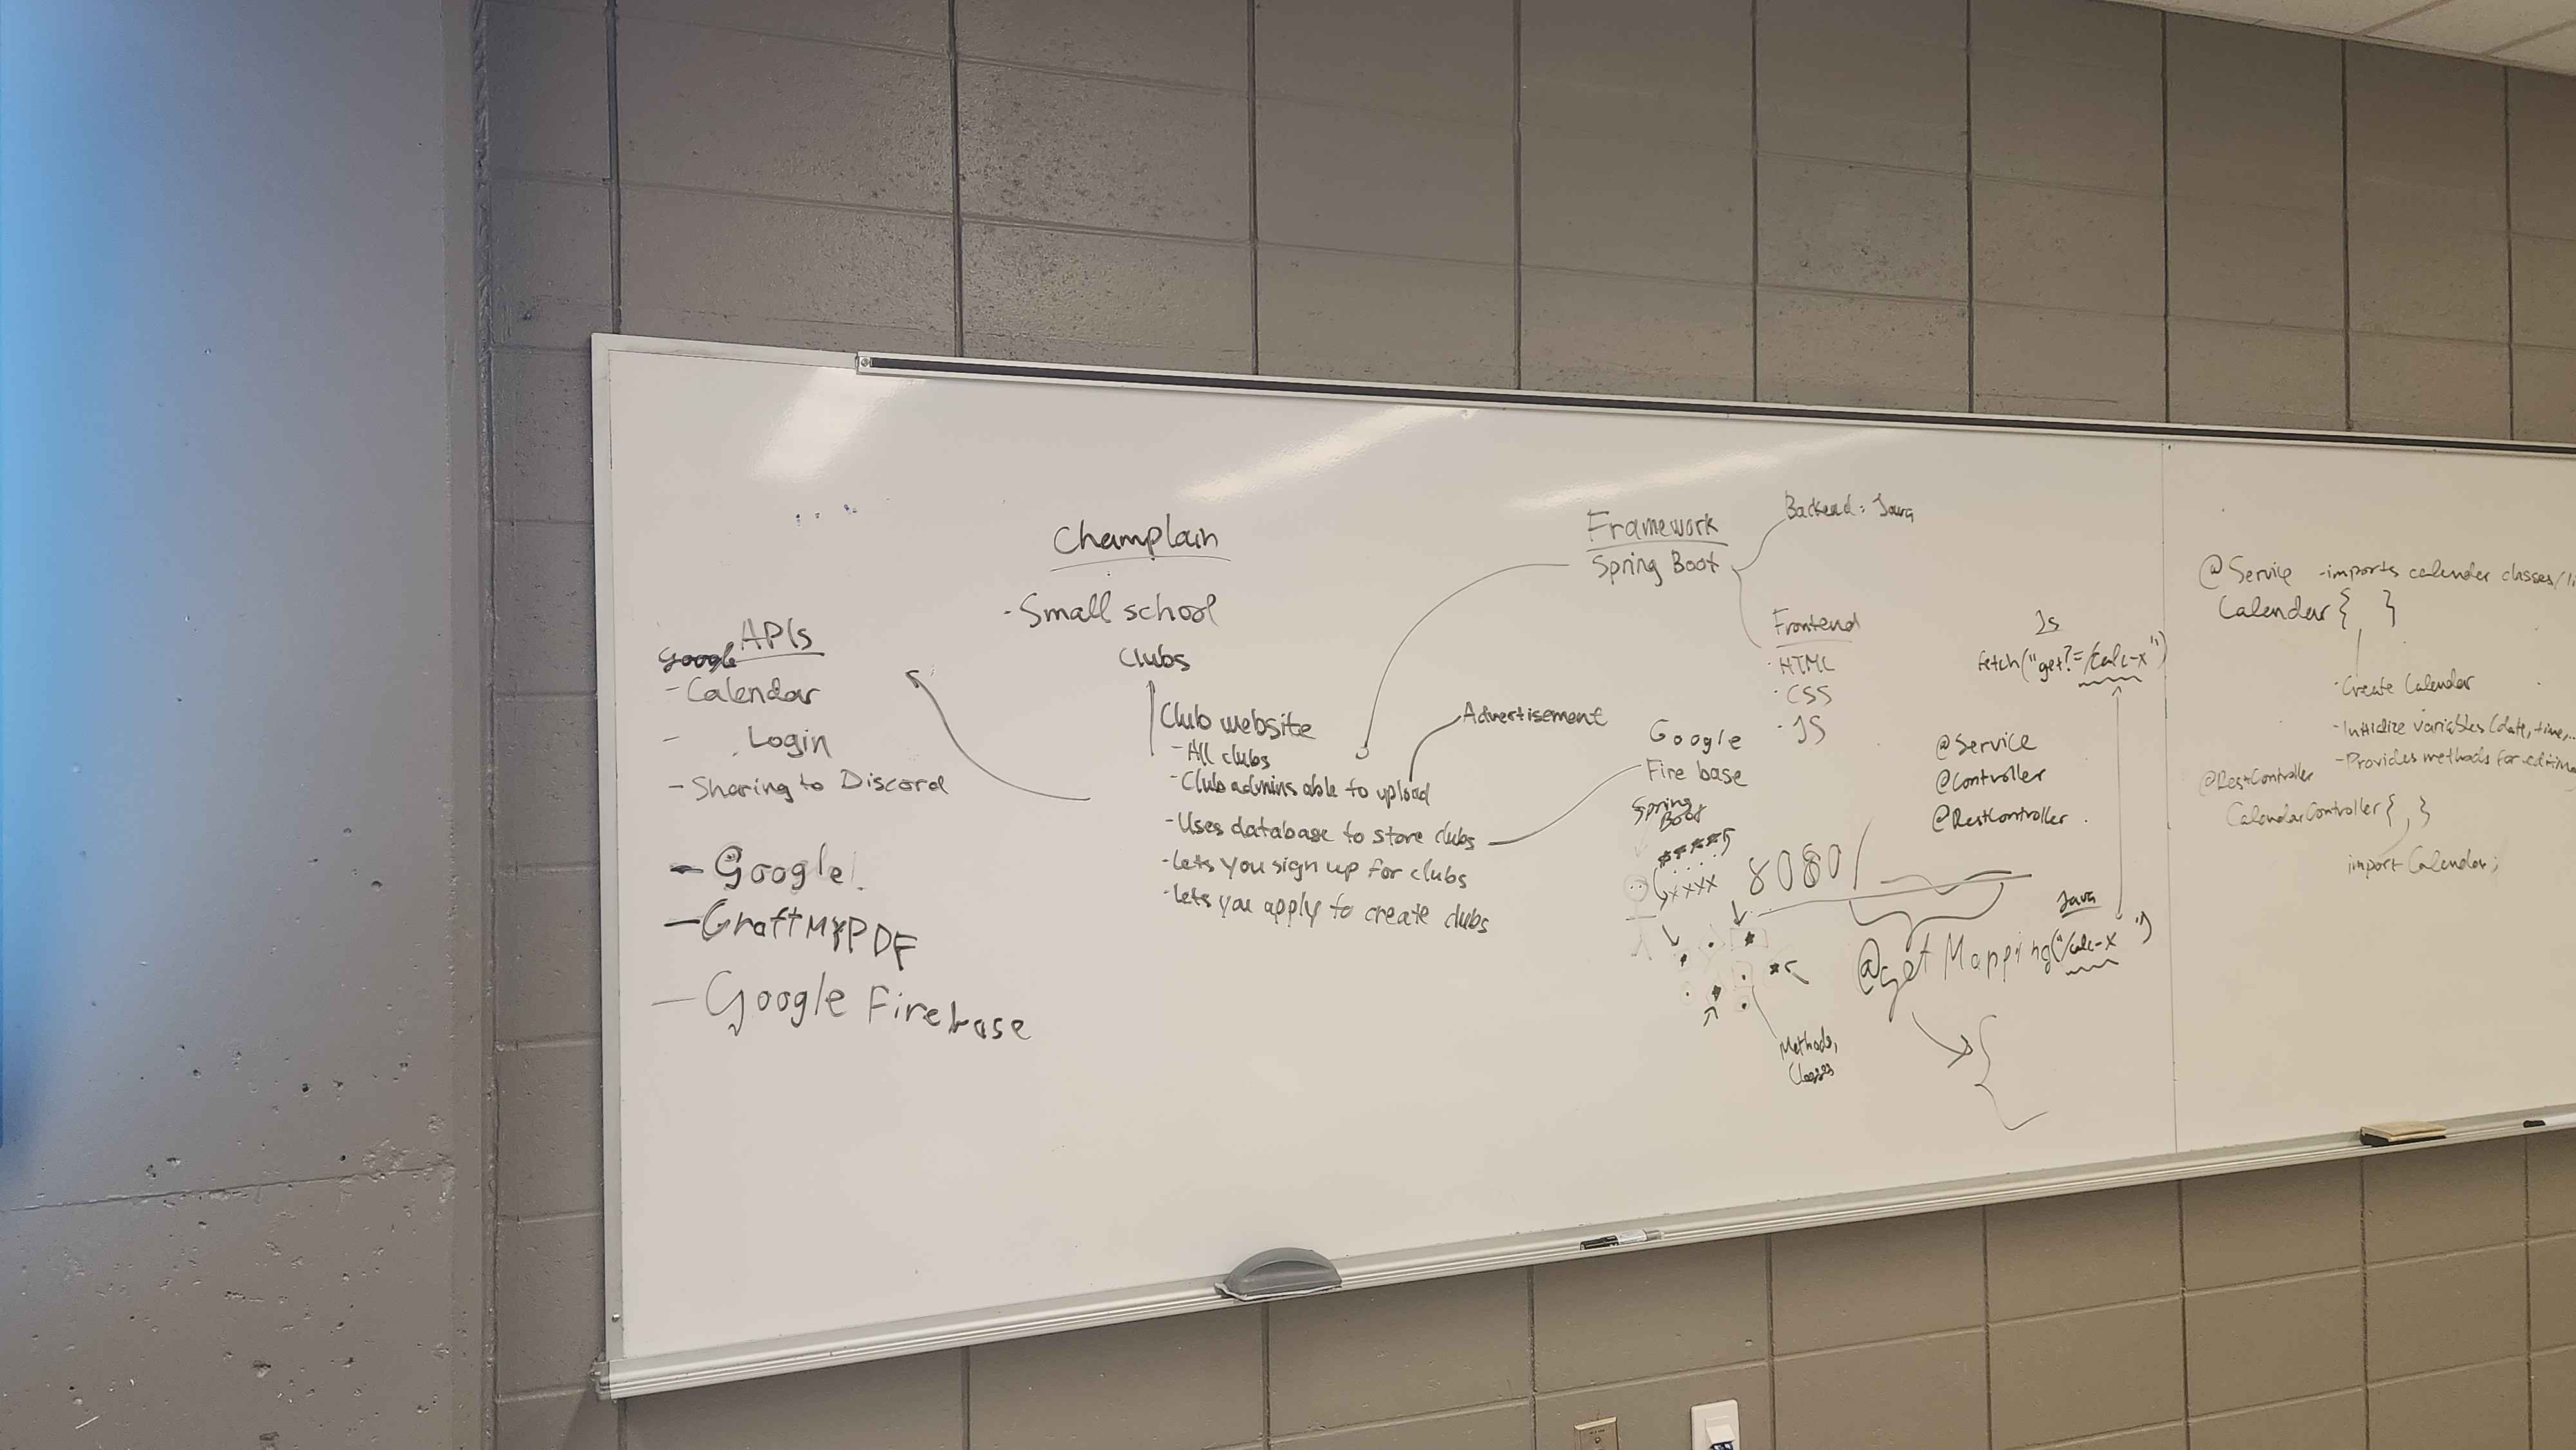 APIs
Google
- Calendar
- Login
- Sharing to Discord
- Google
- CraftMyPDF
- Google Firebase
Champlain
- Small school
Clubs
Club website
- All clubs
- Club admins able to upload
- Uses database to store clubs
- Lets you sign up for clubs
- Lets you apply to create clubs
Advertisement
Framework
Spring Boot
Backend: Java
Frontend
· HTML
· CSS
· JS
Google
Fire base
Spring
Boot
xxxx
8080/
Methods,
Classes
JS
fetch("get?=/calc-x")
@Service
@Controller
@RestController
Java
@getMapping("/calc-x")
{
@Service - imports calender classes/li
Calendar { }
· Create Calendar
- Initialize variables (date, time, ...
- Provides methods for editing
@RestController
CalendarController { }
import Calendar;